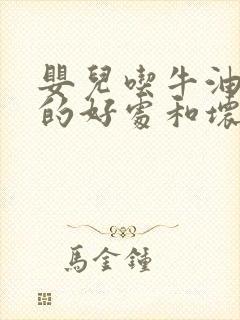 嬰兒喫牛油
的好處和壞
馬金鍾